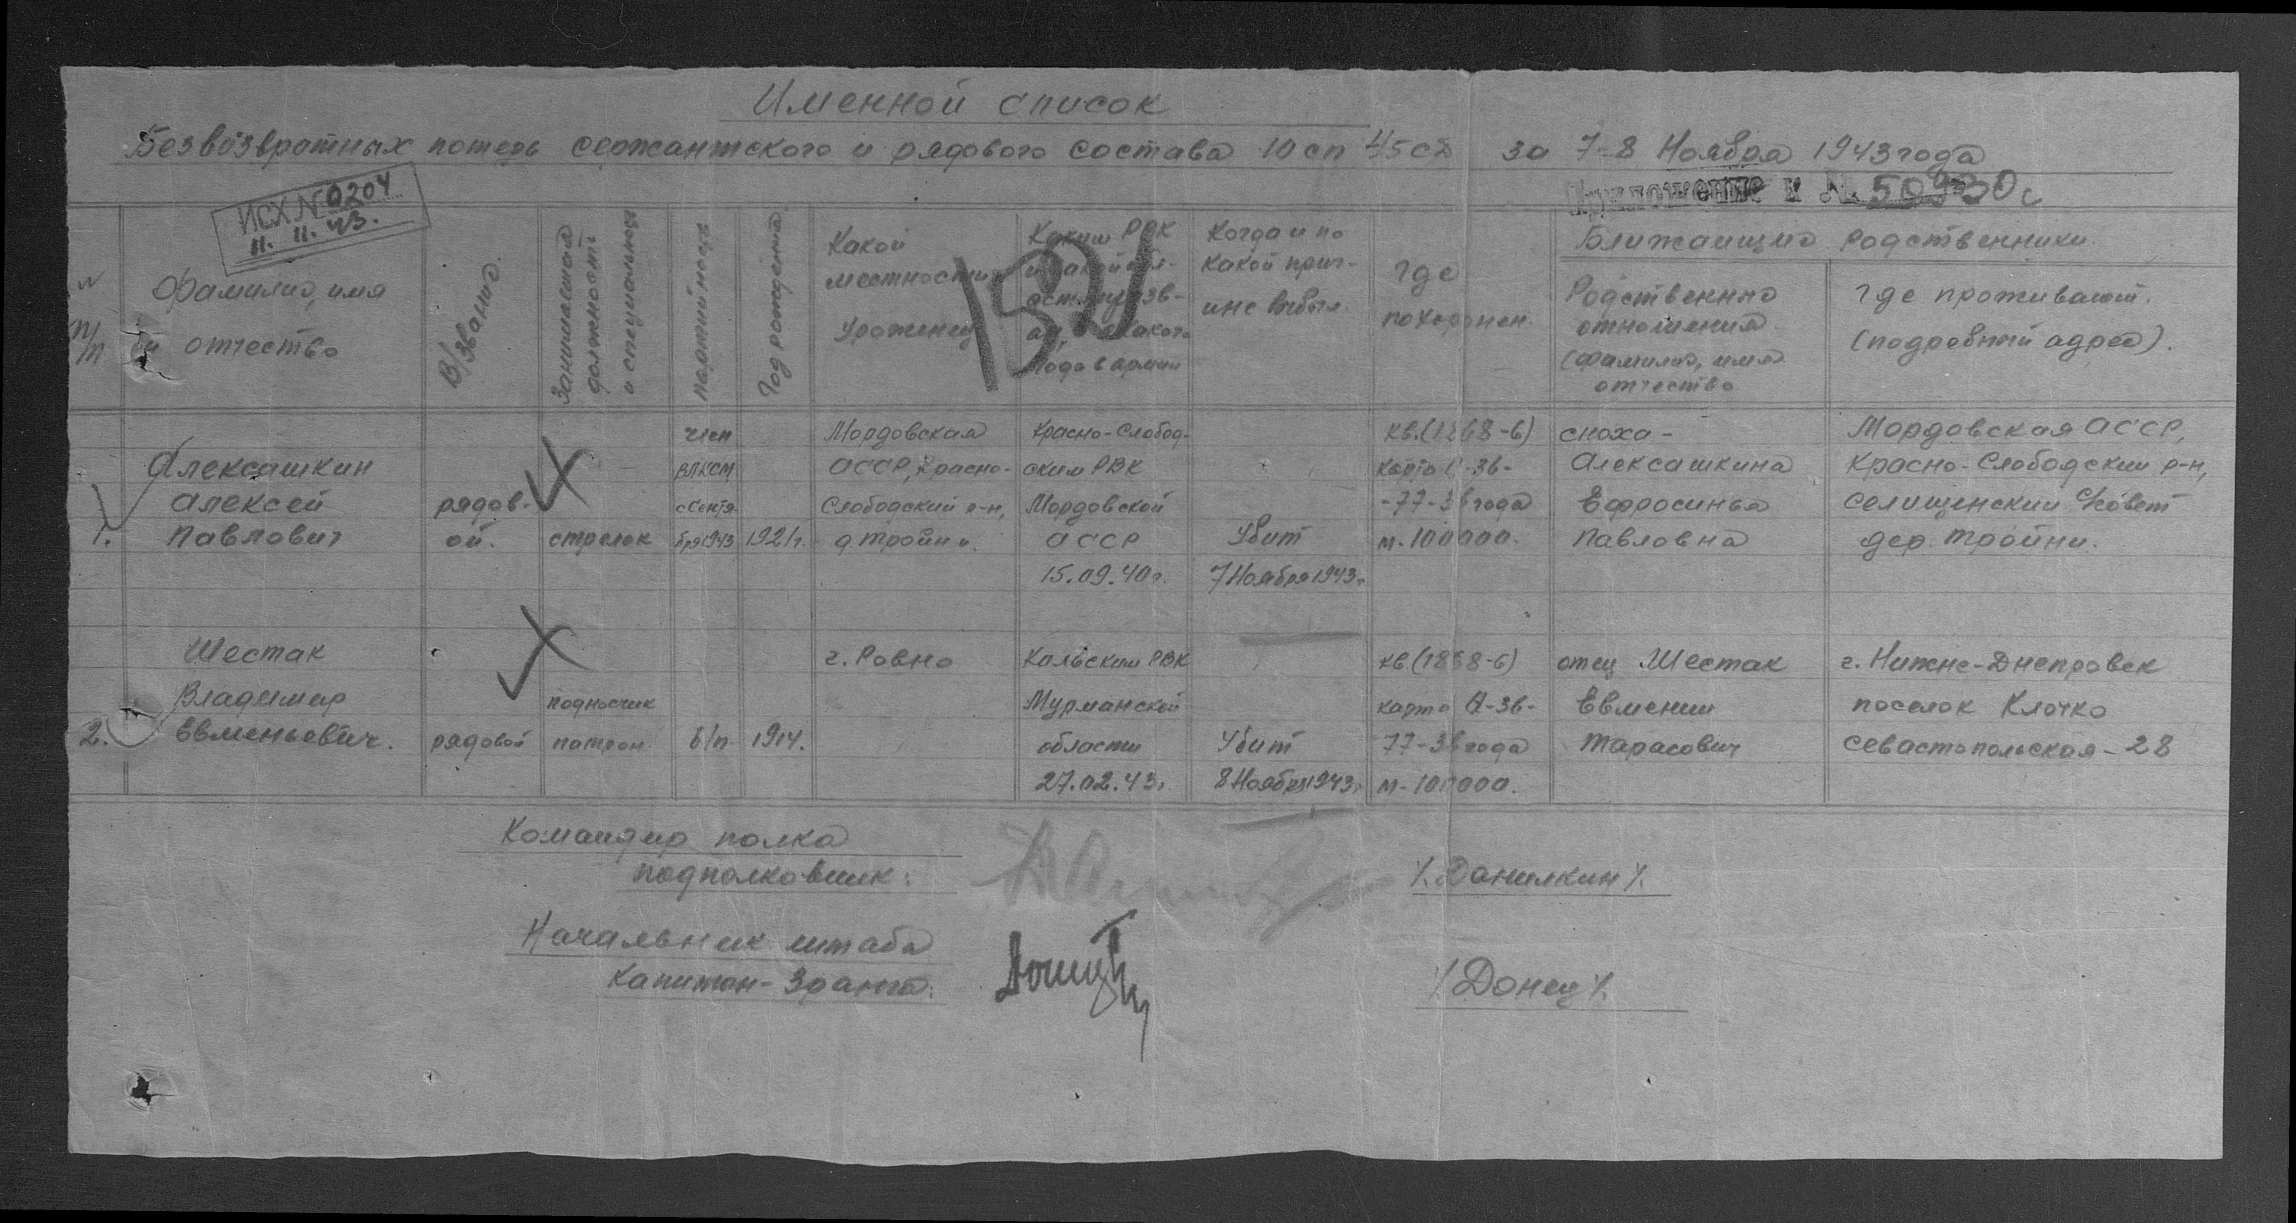 Именной список
Безвозвратных потерь сержантского и рядового состава 10 сп 45 сд за 7-8 Ноября 1943 года
ИСХ № 0204
11. 11. 43.
Приложение к № 50930с
№ п/п
Фамилия, имя
отчество
В/звание
Занимаемая
должность
и специальность
Партийность
Год рождения
Какой
местности
Уроженец
Каким РВК
Когда и по
какой прич-
ине выбыл.
Где
похоронен.
Ближайщие родственники
Родственные
отношения
(фамилия, имя
отчество
Где проживают.
(подробный адрес).
1.
Алексашкин
Алексей
Павлович
рядов-
ой.
стрелок
член
ВЛКСМ
1943
1921г.
Мордовская
АССР, Красно-
Слободский р-н,
д. Тройни.
Красно-Слобод-
ским РВК
Мордовской
АССР
15.09.40г.
Убит
7 Ноября 1943г.
-36-
-77-36 года
м-100000.
сноха-
Алексашкина
Ефросинья
Павловна
Мордовская АССР,
Красно-Слободский р-н,
Селищенский Совет
дер. Тройни.
2.
Шестак
Владимир
Евменьевич.
рядовой
подносчик
патрон
б/п
1914.
г. Ровно
Кольским РВК
Мурманской
области
27.02.43г.
Убит
8 Ноября 1943г.
кв. (1868-6)
карта Q-36-
77-36 года
м-100000.
отец Шестак
Евмений
Тарасович
г. Нижне-Днепровск
поселок Клочко
Севастопольская-28
Командир полка
подполковник:
/Данилкин/.
Начальник штаба
Капитан-3ранга:
/Донец/.